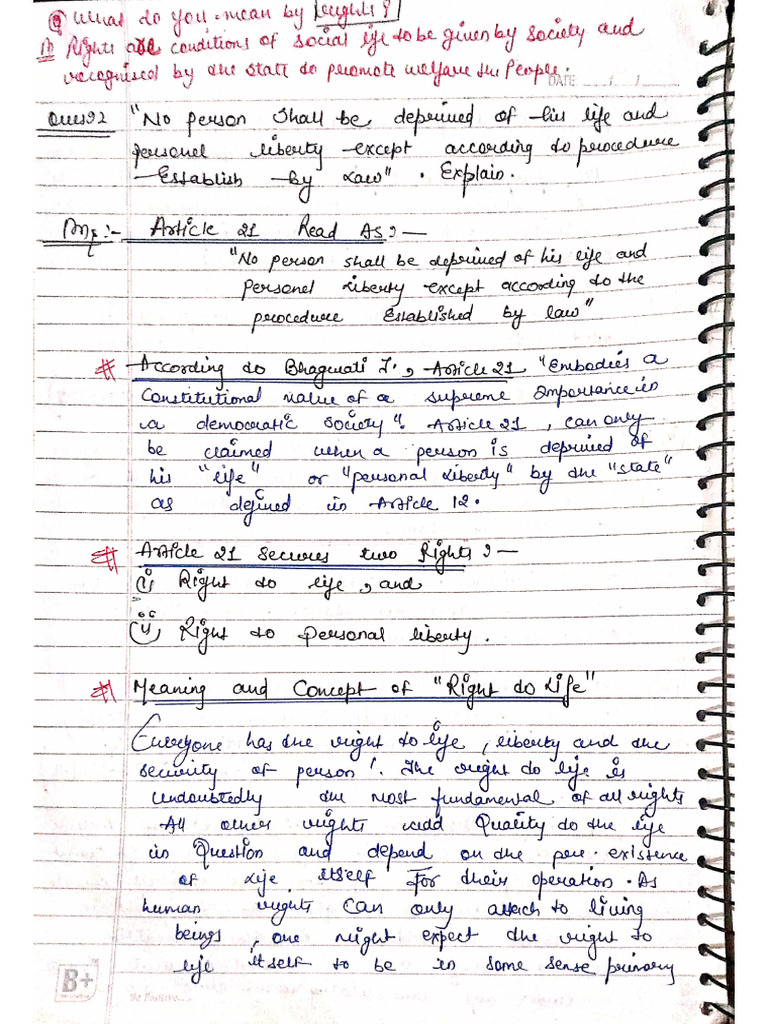 Q What do you mean by Rights?
A Rights are conditions of social life to be given by society and
recognised by the state to promote welfare the People.
DATE
Ques 2 "No person shall be deprived of his life and
personel liberty except according to procedure
Establish by Law". Explain.
Ans :- Article 21 Read As :-
"No person shall be deprived of his life and
personel liberty except according to the
procedure Established by law"
# According to Bhagwati J., Article 21 "Embodies a
Constitutional value of a supreme Importance in
a democratic society". Article 21, can only
be claimed when a person is deprived of
his "life" or "personal liberty" by the "state"
as defined in Article 12.
# Article 21 secures two Rights :-
(i) Right to life, and
(ii) Right to personal liberty.
# Meaning and Concept of "Right to Life"
Everyone has the right to life, liberty and the
security of person'. The right to life is
undoubtedly the most fundamental of all rights
All other rights add Quality to the life
in Question and depend on the pre-existence
of life itself for their operation. As
human rights can only attach to living
beings, one might expect the right to
life itself to be in some sense primary
B+